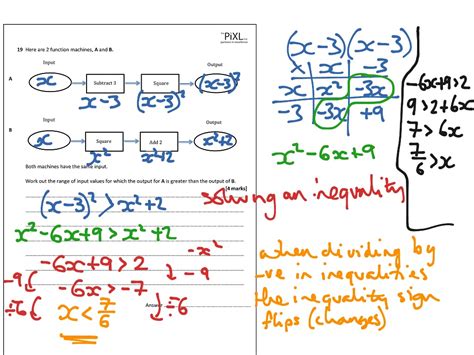 The PiXL Club
19 Here are 2 function machines, A and B.
Input Output
A x Subtract 3 x-3 Square (x-3)² (x-3)²
Input Output
B x Square x² Add 2 x²+2 x²+2
Both machines have the same input.
Work out the range of input values for which the output of A is greater than the output of B.
[4 marks]
(x-3)² > x²+2
x²-6x+9 > x²+2
-x²
-6x+9 > 2
-9 -9
-6x > -7
÷-6 Answer ÷-6
x < 7/6
(x-3)(x-3)
× x -3
x x² -3x
-3 -3x +9
x²-6x+9
solving an inequality
when dividing by
-ve in inequalities
the inequality sign
flips (changes)
-6x+9>2
9>2+6x
7>6x
7/6>x